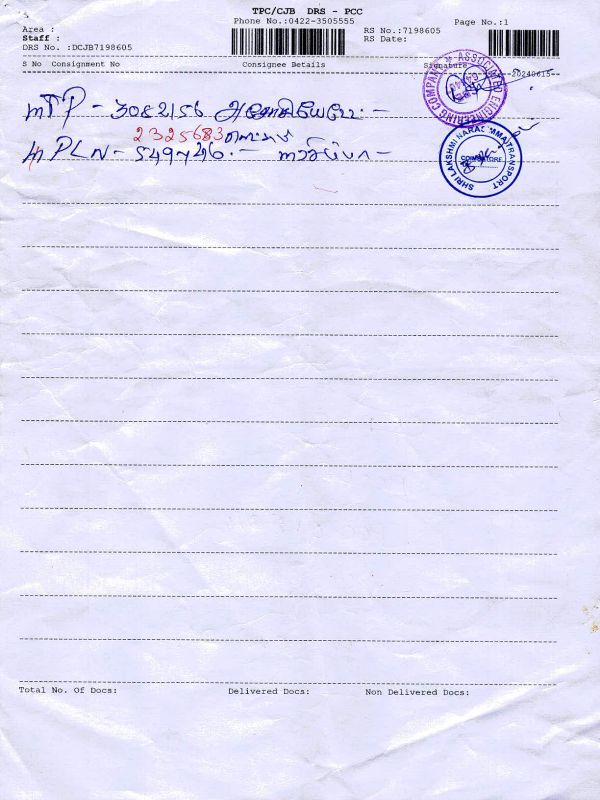 TPC/CJB DRS - PCC
Phone No.:0422-3505555
Page No.:1
Area :
RS No.:7198605
Staff :
RS Date:
DRS No. :DCJB7198605
S No Consignment No Consignee Details Signature
--20240615--
ASSOCIATED ENGINEERING COMPANY
MTP - 3082156 அசோசியேட் -
2325683
PLN - 549746 -
SHRI LAKSHMI NARASIMMA TRANSPORT
COIMBATORE
Total No. Of Docs: Delivered Docs: Non Delivered Docs: